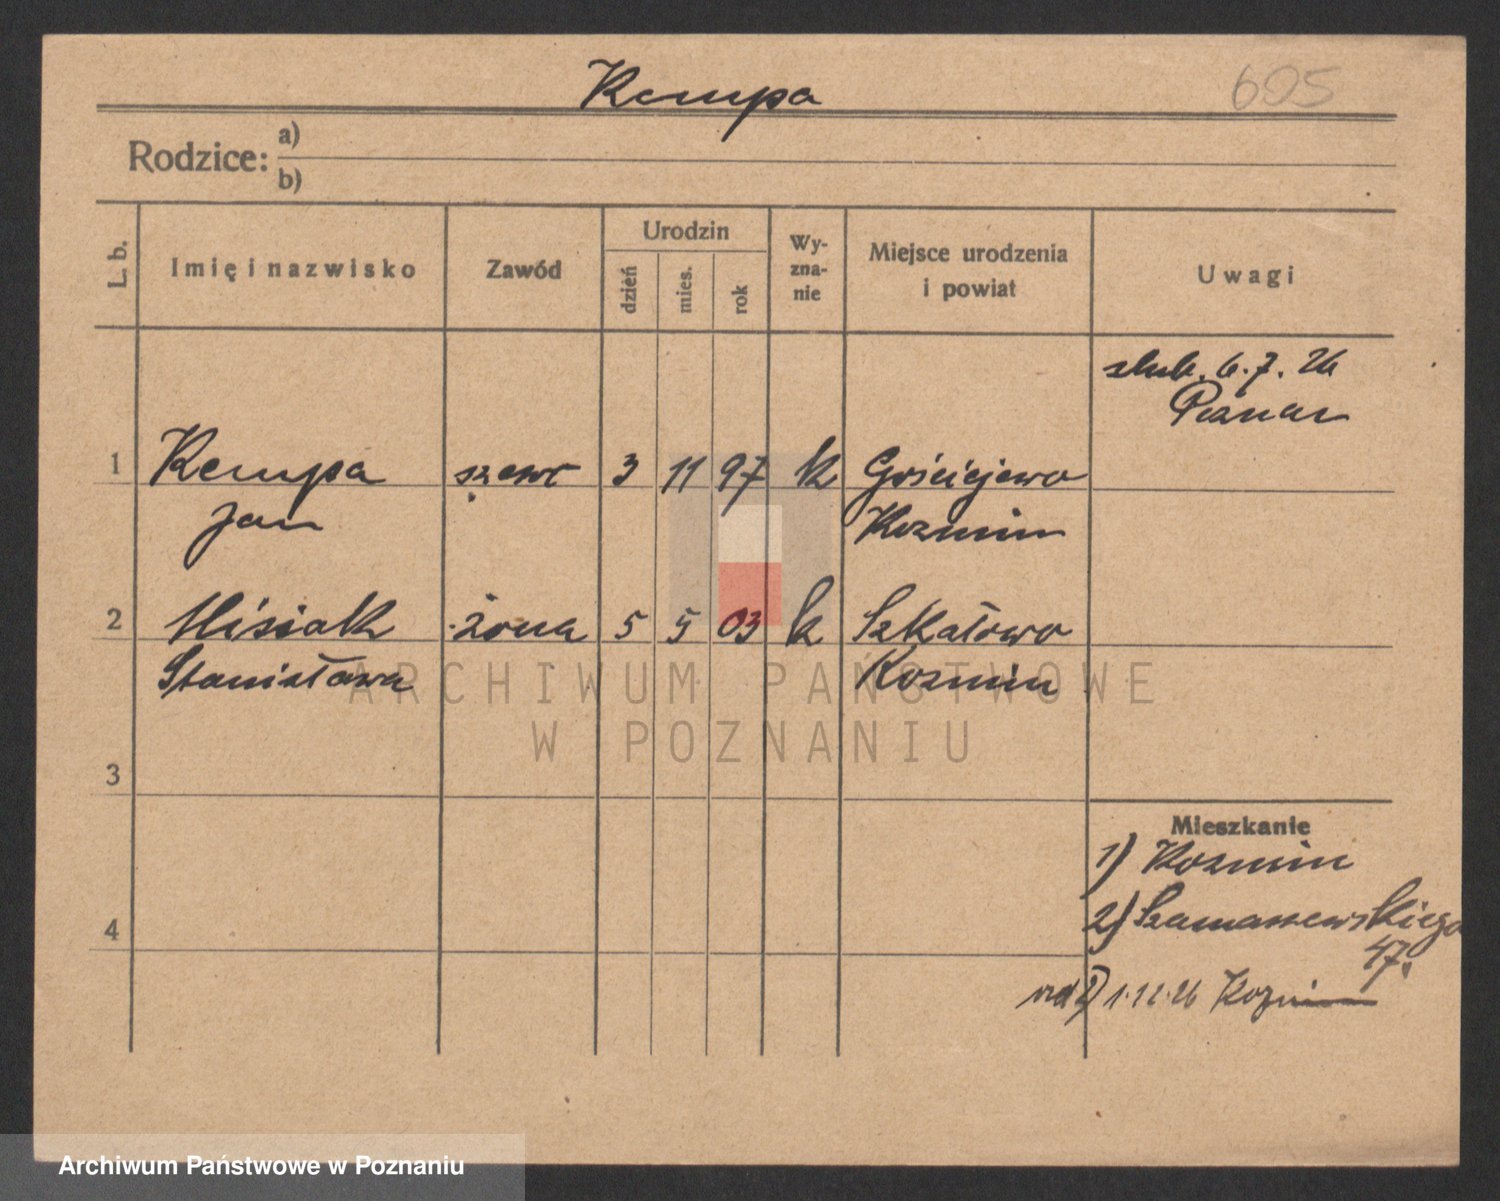 Kempa
605
Rodzice: a)
b)
L. b.
Imię i nazwisko
Zawód
Urodzin
dzień
mies.
rok
Wy-
zna-
nie
Miejsce urodzenia
i powiat
Uwagi
slub. 6.7.26
Poznan
1 Kempa szewc 3 11 97 k Gościejewo
Jan Kozmin
2 Misiak żona 5 5 03 k Szkałowo
Stanisława Kozmin
3
4
Mieszkanie
1) Kozmin
2) Szamarzewskiego
47.
1.12.26 Kozmin
ARCHIWUM PAŃSTWOWE
W POZNANIU
Archiwum Państwowe w Poznaniu